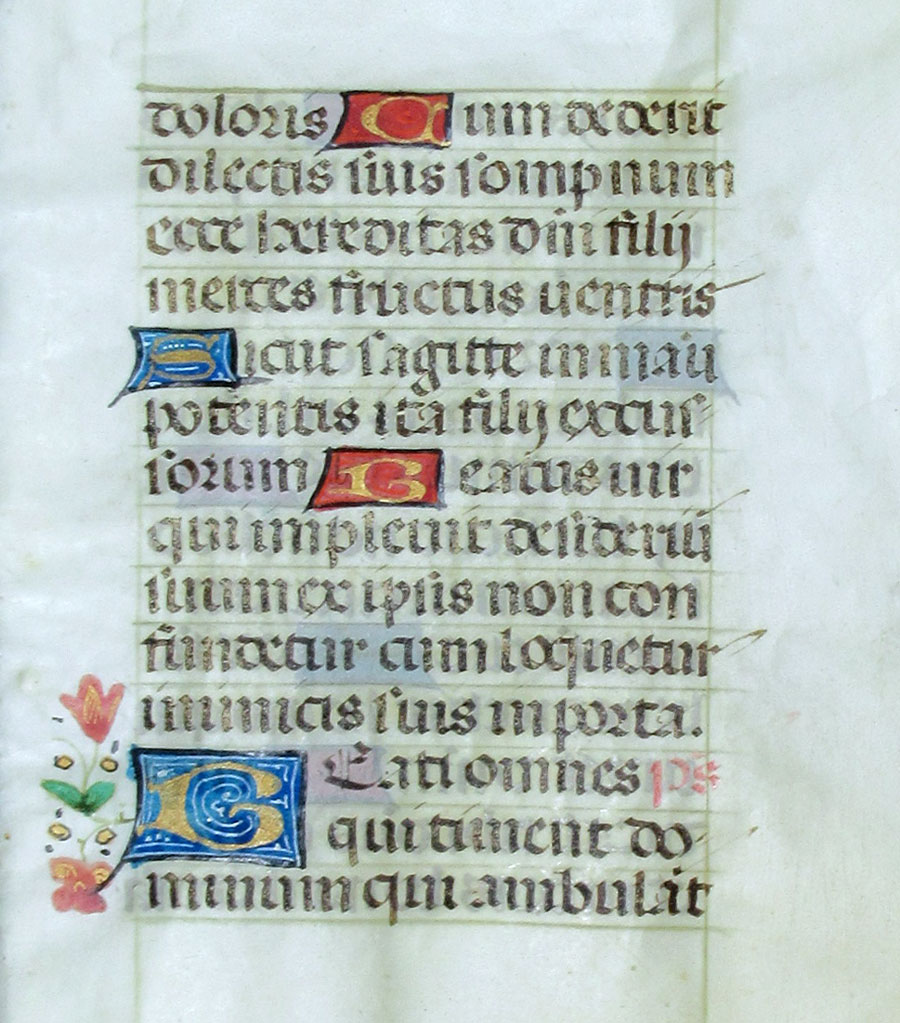 doloris Cum dederit
dilectis suis sompnum
ecce hereditas dñi filij
merces fructus uentris
Sicut sagitte in manu
potentis ita filij excus-
sorum Beatus uir
qui impleuit desideriũ
suum ex ipsis non con
fundetur cum loquetur
inimicis suis in porta.
Beati omnes ps
qui timent do-
minum qui ambulãt